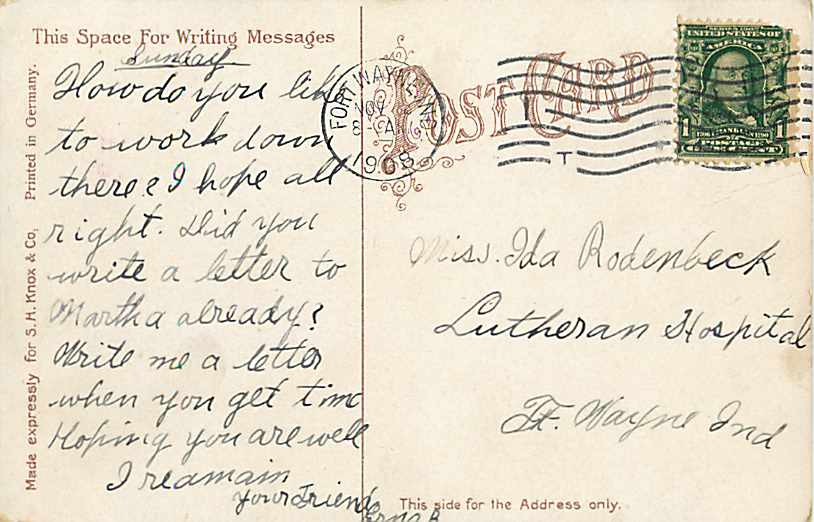 This Space For Writing Messages
Sunday
How do you like
to work down
there? I hope all
right. Did you
write a letter to
Martha already?
Write me a letter
when you get time
Hoping you are well
I reamain
your Friend
Made expressly for S.H. Knox & Co, Printed in Germany.
POST CARD
FORT WAYNE, IND.
NOV
8 - A
1908
T
SERIES 1902
UNITED STATES OF
AMERICA
1706 FRANKLIN 1790
POSTAGE
1 1
Miss. Ida Rodenbeck
Lutheran Hospital
Ft. Wayne Ind
This side for the Address only.